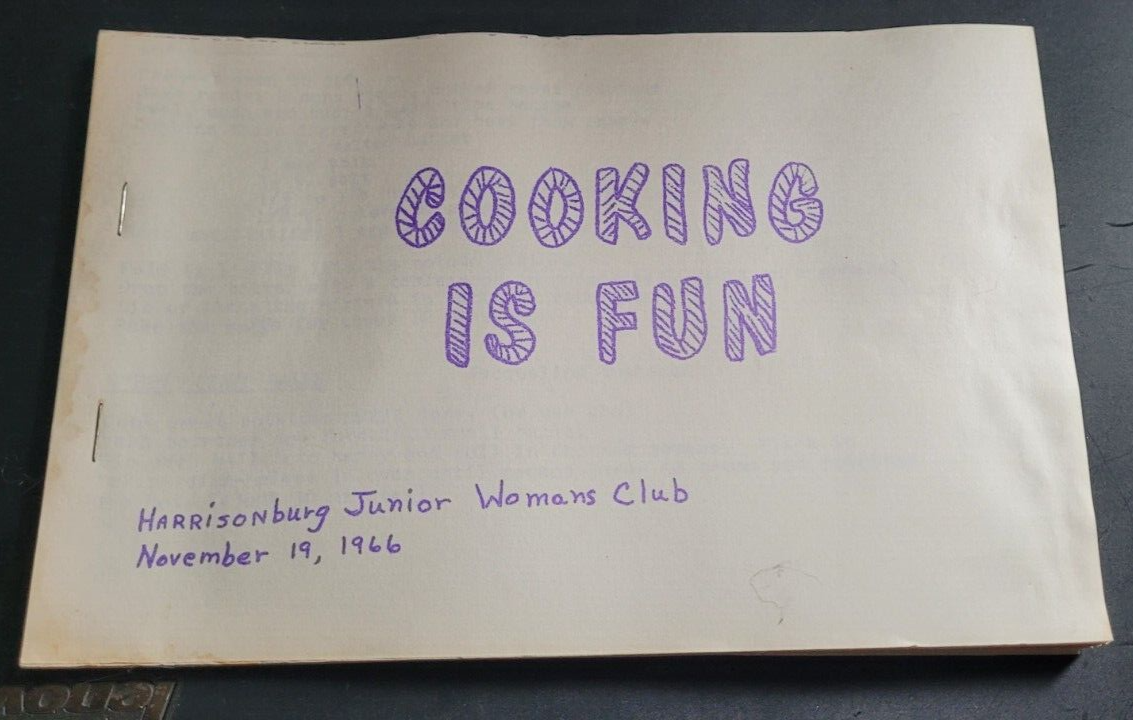 COOKING
IS FUN
HARRiSONburg Junior Womans Club
November 19, 1966